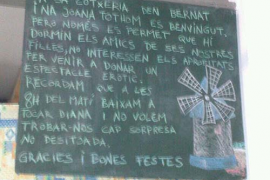 LA COTXERIA DEN BERNAT
I NA JOANA TOTHOM ES BENVINGUT,
PERÒ NOMÉS ES PERMET QUE HI
DORMIN ELS AMICS DE SES NOSTRES
FILLES, NO INTERESSEN ELS APROFITATS
PER VENIR A DONAR UN
ESPECTACLE ERÒTIC!
RECORDAM QUE A LES
8H DEL MATÍ BAIXAM A
TOCAR DIANA I NO VOLEM
TROBAR-NOS CAP SORPRESA
NO DESITJADA.
GRACIES I BONES FESTES